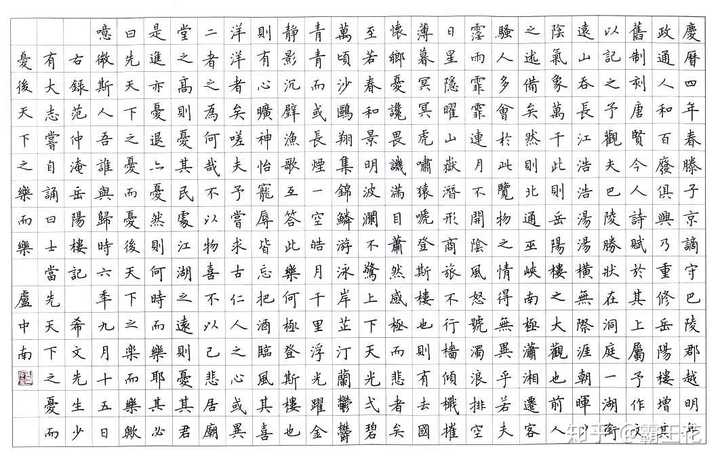 慶曆四年春滕子京謫守巴陵郡越明年
政通人和百廢俱興乃重修岳陽樓增其
舊制刻唐賢今人詩賦於其上屬予作文
以記之予觀夫巴陵勝狀在洞庭一湖銜
遠山吞長江浩浩湯湯橫無際涯朝暉夕
陰氣象萬千此則岳陽樓之大觀也前人
之述備矣然則北通巫峽南極瀟湘遷客
騷人多會於此覽物之情得無異乎若夫
霪雨霏霏連月不開陰風怒號濁浪排空
日星隱曜山嶽潛形商旅不行檣傾檝摧
薄暮冥冥虎嘯猿唬登斯樓也則有去國
懷鄉憂讒畏譏滿目蕭然感極而悲者矣
至若春和景明波瀾不驚上下天光弌碧
萬頃沙鷗翔集錦鱗游泳岸芷汀蘭鬱鬱
青青而或長煙一空皓月千里浮光躍金
靜影沉璧漁歌互答此樂何極登斯樓也
則有心曠神怡寵辱皆忘把酒臨風其喜
洋洋者矣嗟夫予嘗求古仁人之心或異
二者之為何哉不以物喜不以己悲居廟
堂之高則憂其民處江湖之遠則憂其君
是進亦憂退亦憂然則何時而樂耶其必
曰先天下之憂而憂後天下之樂而樂歟
噫微斯人吾誰與歸時六年九月十五日
右錄范仲淹岳陽樓記 希文先生少
有大志嘗自誦曰士當先天下之憂而
憂後天下之樂而樂 盧中南
知乎 @霸王花